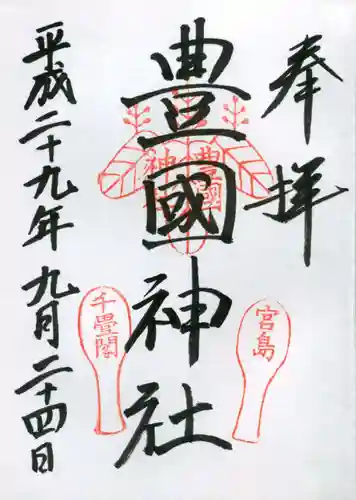 奉拝
豊國神社
豊國
神社
宮島
千畳閣
平成二十九年九月二十四日